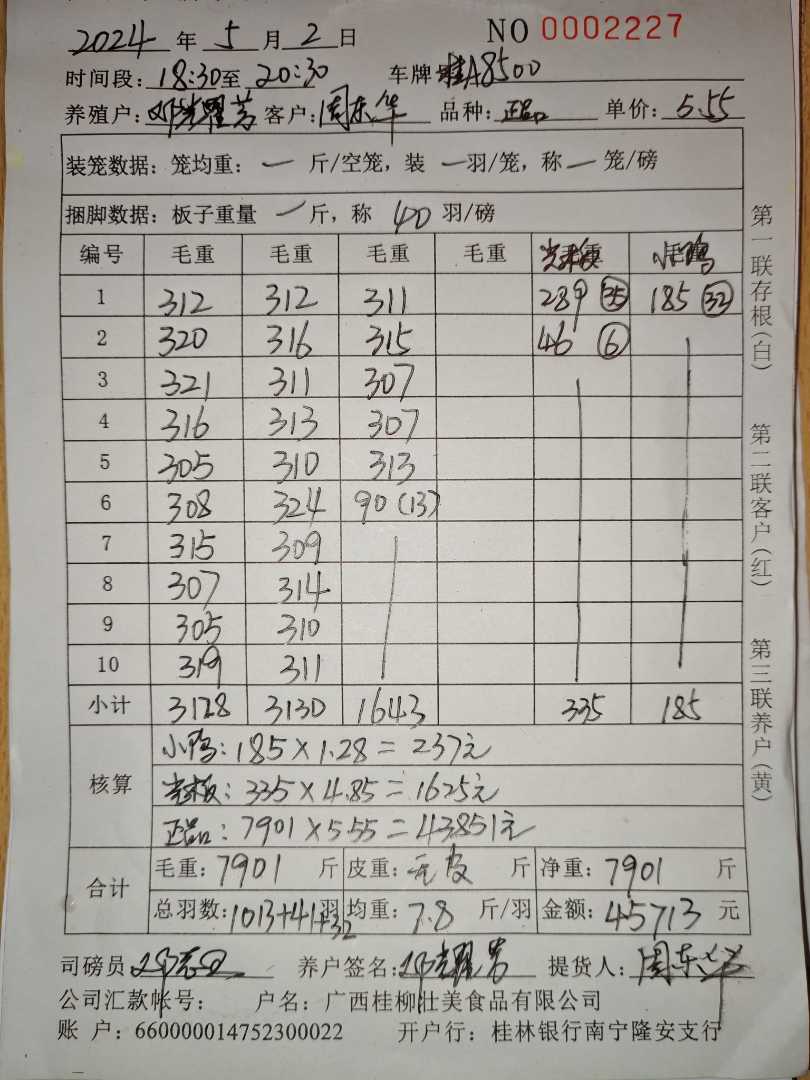 2024 年 5 月 2 日 NO 0002227
时间段: 18:30至 20:30 车牌号桂A8500
养殖户: 邓耀芳 客户: 周东华 品种: 正品 单价: 5.55
装笼数据: 笼均重: 一 斤/空笼, 装 一羽/笼, 称一 笼/磅
捆脚数据: 板子重量 一斤, 称 40 羽/磅
编号 毛重 毛重 毛重 毛重 光板 小鸭
1 312 312 311 289 (35) 185 (32)
2 320 316 315 46 (6)
3 321 311 307
4 316 313 307
5 305 310 313
6 308 324 90 (13)
7 315 309
8 307 314
9 305 310
10 319 311
小计 3128 3130 1643 335 185
核算
小鸭: 185 × 1.28 = 237元
光板: 335 × 4.85 = 1625元
正品: 7901 × 5.55 = 43851元
合计
毛重: 7901 斤 皮重: 无皮 斤 净重: 7901 斤
总羽数: 1013+41+32 羽 均重: 7.8 斤/羽 金额: 45713 元
司磅员 养户签名: 邓耀芳 提货人: 周东华
公司汇款帐号: 户名: 广西桂柳壮美食品有限公司
账 户: 660000014752300022 开户行: 桂林银行南宁隆安支行
第一联存根(白) 第二联客户(红) 第三联养户(黄)